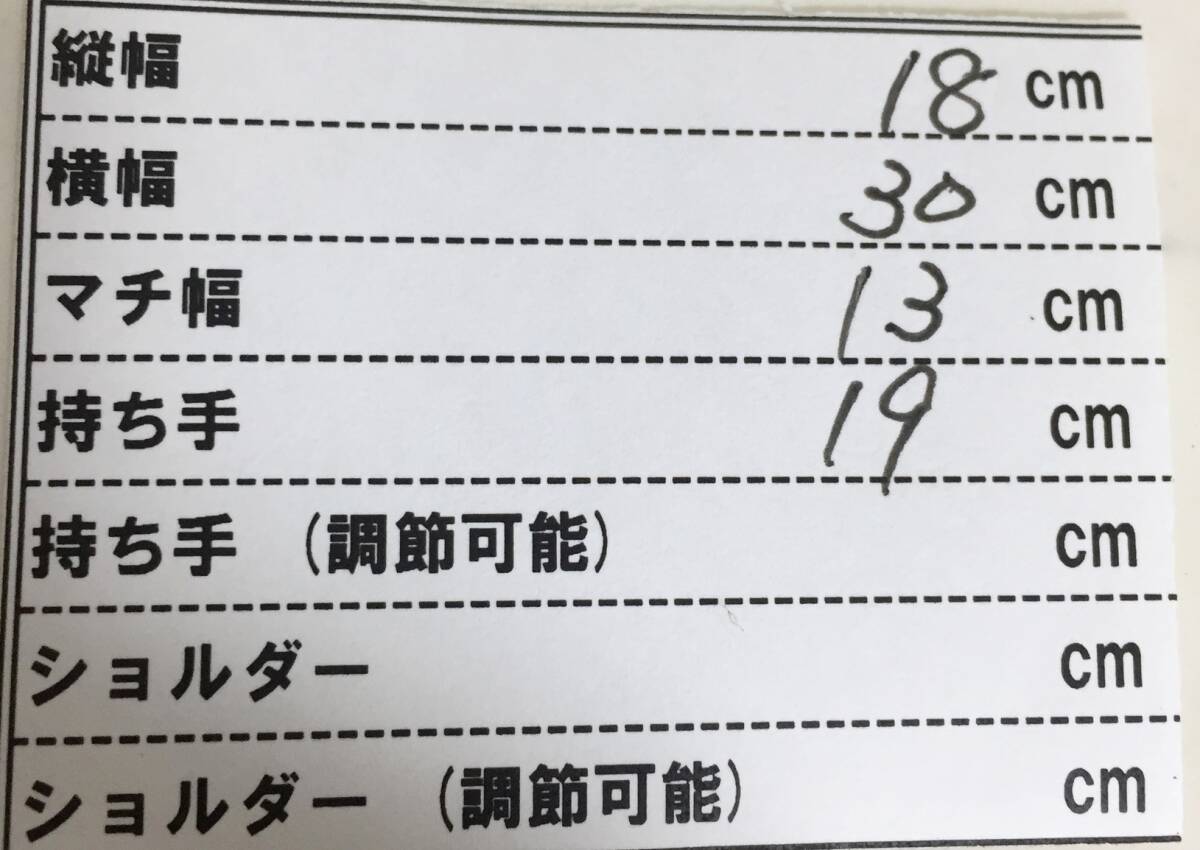 縦幅 18 cm
横幅 30 cm
マチ幅 13 cm
持ち手 19 cm
持ち手 (調節可能) cm
ショルダー cm
ショルダー (調節可能) cm